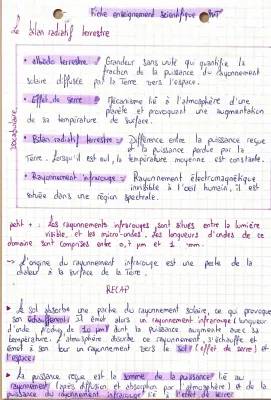 Fiche enseignement scientifique
Le bilan radiatif terrestre
vocabulaire
• albédo terrestre : Grandeur sans unité qui quantifie la
fraction de la puissance du rayonnement
solaire diffusée par la Terre vers l'espace.
• Effet de serre : Mécanisme lié à l'atmosphère d'une
planète et provoquant une augmentation
de sa température de surface.
• Bilan radiatif terrestre : Différence entre la puissance reçue
et la puissance perdue par la
Terre. Lorsqu'il est nul, la température moyenne est constante.
• Rayonnement infrarouge : Rayonnement électromagnétique
invisible à l'œil humain, il est
située dans une région spectrale.
petit + : Les rayonnements infrarouges sont situés entre la lumière
visible, et les micro-ondes. Les longueurs d'ondes de ce
domaine sont comprises entre 0,7 µm et 1 mm.
→ L'origine du rayonnement infrarouge est une perte de la
chaleur à la surface de la Terre.
RECAP
► Le sol absorbe une partie du rayonnement solaire, ce qui provoque
son échauffement. Il émet alors un rayonnement infrarouge (longueur
d'onde proche de 10 µm) dont la puissance augmente avec sa
température. L'atmosphère absorbe ce rayonnement, s'échauffe et
émet à son tour un rayonnement vers le sol (effet de serre) et
l'espace.
► La puissance reçue est la somme de la puissance lié au
rayonnement (après diffusion et absorption par l'atmosphère) et de la
puissance du rayonnement infrarouge lié à l'effet de serre.